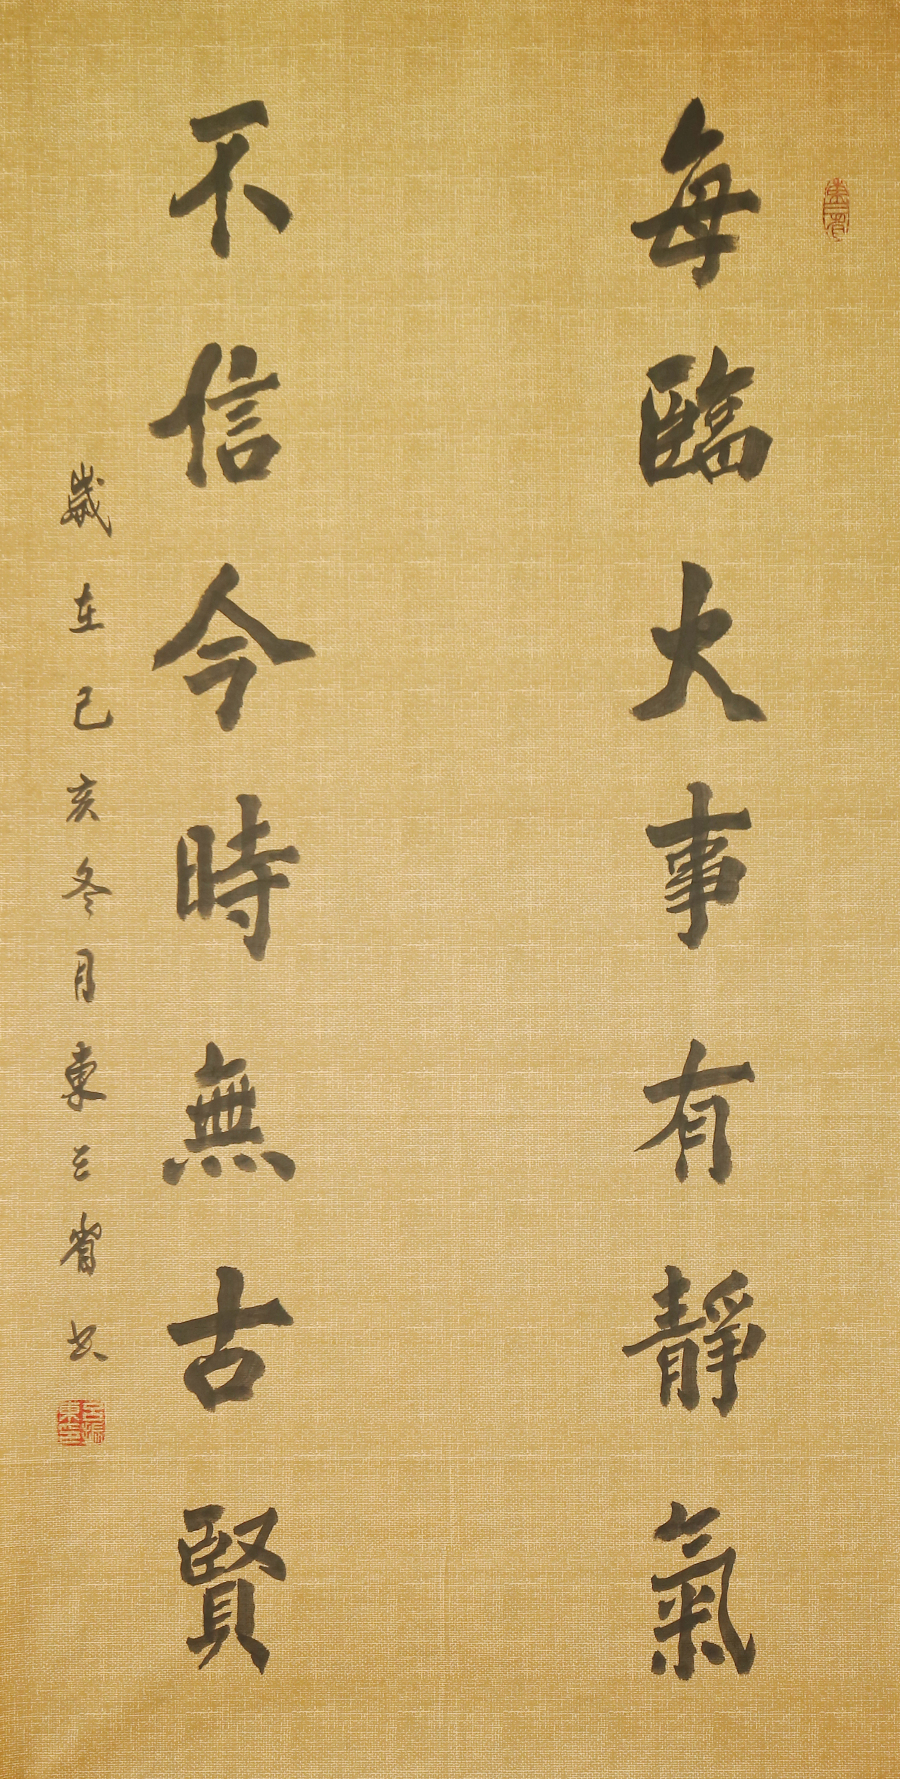 每臨大事有靜氣
不信今時無古賢
歲在己亥冬月東三省書